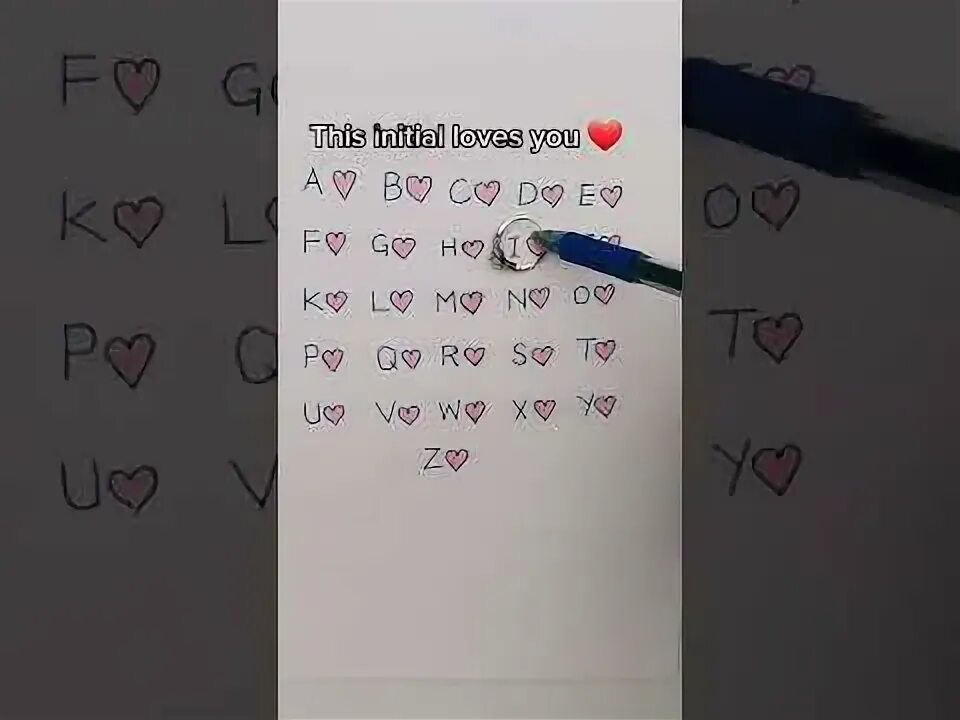 This initial loves you ❤️
A B C D E
F G H I
K L M N O
P Q R S T
U V W X Y
Z